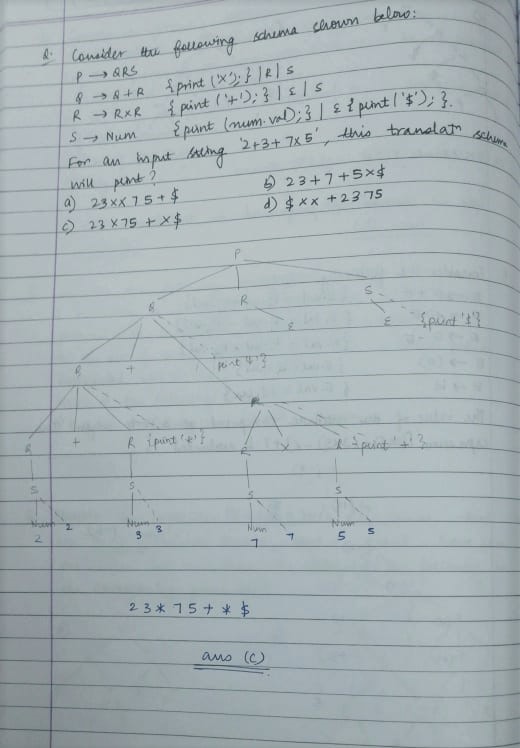 Q. Consider the following schema shown below:
P → QRS
Q → Q + R {print ('x'); } | R | S
R → R x R {print ('+'); } | ε | S
S → Num {print (num.val); } | ε {print ('$'); }.
For an input string '2+3+7x5', this translatn schema
will print?
a) 23xx75+$ b) 23+7+5x$
c) 23x75+x$ d) $xx+2375
P
Q R S
ε ε {print '$'}
Q +
R
Q + R {print '*'} R x R {print '+'}
S S S S
Num 2 Num 3 Num 7 Num 5
2 3 7 5
23*75+*$
ans (c)